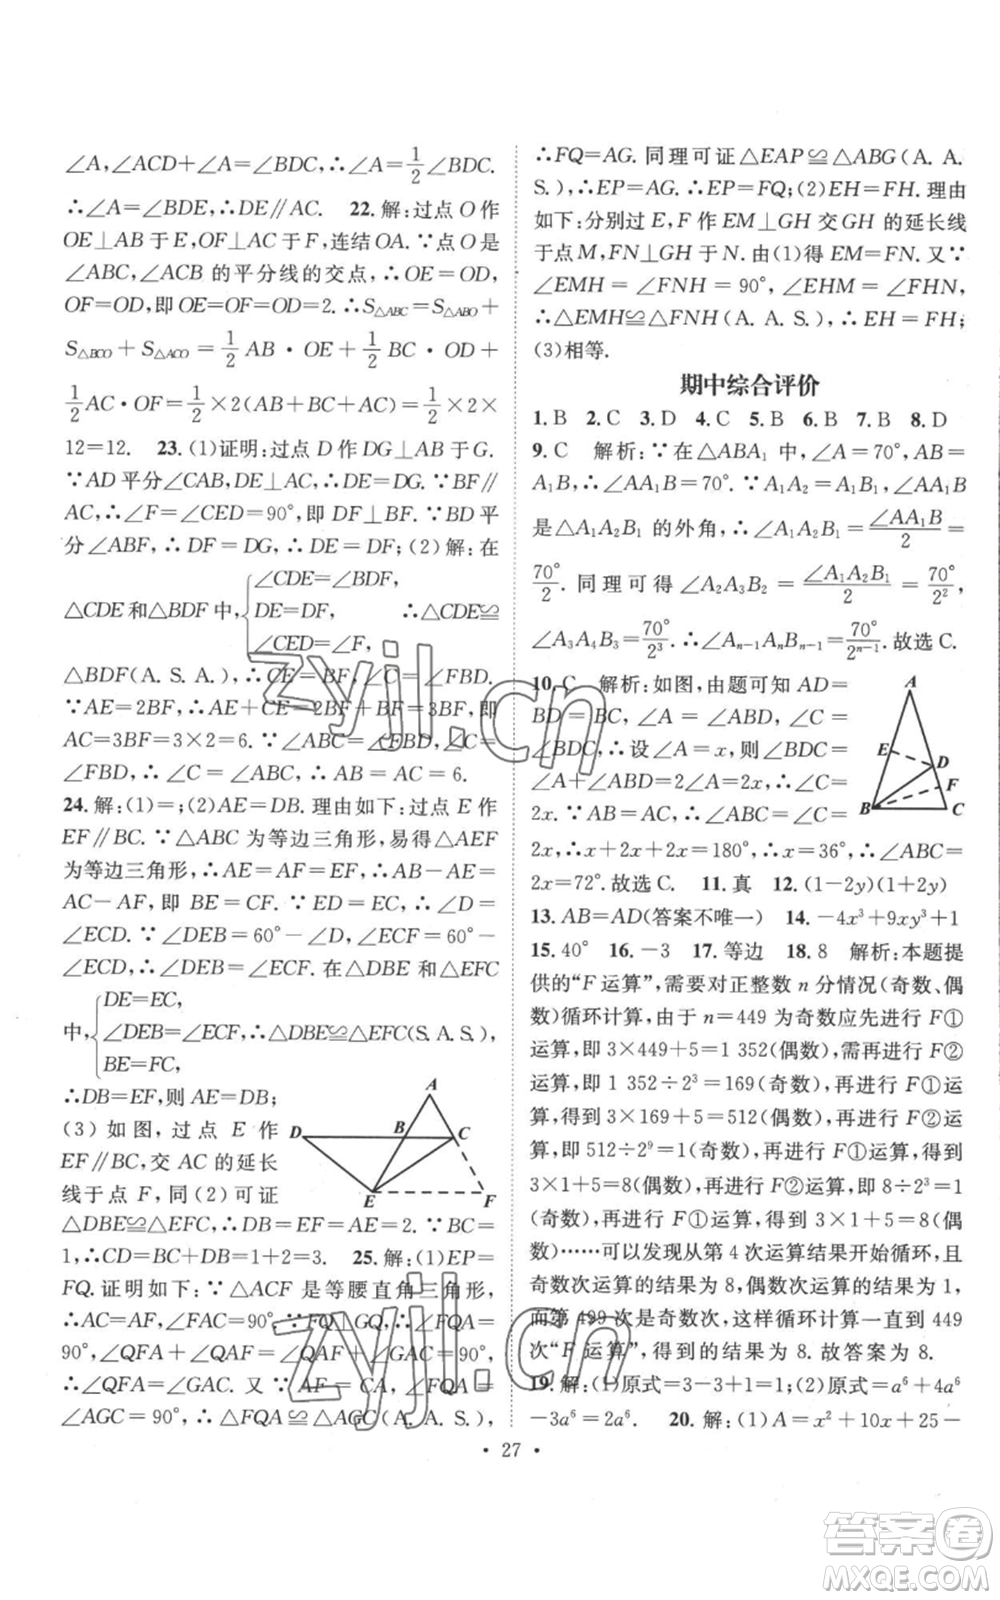 ∠A,∠ACD+∠A=∠BDC,∴∠A=1/2∠BDC.
∴∠A=∠BDE,∴DE∥AC. 22.解:过点O作
OE⊥AB于E,OF⊥AC于F,连结OA.∵点O是
∠ABC,∠ACB的平分线的交点,∴OE=OD,
OF=OD,即OE=OF=OD=2.∴S△ABC=S△ABO+
S△BCO+S△ACO=1/2AB·OE+1/2BC·OD+
1/2AC·OF=1/2×2(AB+BC+AC)=1/2×2×
12=12. 23.(1)证明:过点D作DG⊥AB于G.
∵AD平分∠CAB,DE⊥AC,∴DE=DG.∵BF∥
AC,∴∠F=∠CED=90°,即DF⊥BF.∵BD平
分∠ABF,∴DF=DG,∴DE=DF;(2)解:在
△CDE和△BDF中,{∠CDE=∠BDF,
DE=DF,
∠CED=∠F,
∴△CDE≌
△BDF(A.S.A.),∴CE=BF,∠C=∠FBD.
∵AE=2BF,∴AE+CE=2BF+BF=3BF,即
AC=3BF=3×2=6.∵∠ABD=∠FBD,∠C=
∠FBD,∴∠C=∠ABD,∴AB=AC=6.
24.解:(1)=;(2)AE=DB.理由如下:过点E作
EF∥BC.∵△ABC为等边三角形,易得△AEF
为等边三角形,∴AE=EF=AF.∵AB=AC,
∴AB-AE=AC-AF,即BE=CF.∵ED=EC,∴∠D=
∠ECD.∵∠DEB=60°-∠D,∠ECF=60°-
∠ECD,∴∠DEB=∠ECF.在△DBE和△EFC
中,{DE=EC,
∠DEB=∠ECF,
BE=FC,
∴△DBE≌△EFC(S.A.S.),
∴DB=EF,则AE=DB;
(3)如图,过点E作
EF∥BC,交AC的延长
线于点F,同(2)可证
△DBE≌△EFC,∴DB=EF=AE=2.∵BC=
1,∴CD=BC+DB=1+2=3. 25.解:(1)EP=
FQ.证明如下:∵△ACF是等腰直角三角形,
∴AF=AC,∠FAC=90°.∵FQ⊥GQ,∴∠FQA=
90°,∠QFA+∠QAF=90°,∠QAF+∠GAC=90°,
∴∠QFA=∠GAC.又∵AF=CA,∠FQA=
∠AGC=90°,∴△FQA≌△AGC(A.A.S.),
A
D
B
C
E
F
∴FQ=AG.同理可证△EAP≌△ABG(A.A.
S.),∴EP=AG,∴EP=FQ;(2)EH=FH.理由
如下:分别过E,F作EM⊥GH交GH的延长线
于点M,FN⊥GH于N.由(1)得EM=FN.又∵
∠EMH=∠FNH=90°,∠EHM=∠FHN,
∴△EMH≌△FNH(A.A.S.),∴EH=FH;
(3)相等.
期中综合评价
1.B 2.C 3.D 4.C 5.B 6.B 7.B 8.D
9.C 解析:∵在△ABA₁中,∠A=70°,AB=
A₁B,∴∠AA₁B=70°.∵A₁A₂=A₁B₁,∠AA₁B
是△A₁A₂B₁的外角,∴∠A₁A₂B₁=∠AA₁B/2=
70°/2.同理可得∠A₂A₃B₂=∠A₁A₂B₁/2=70°/2²,
∠A₃A₄B₃=70°/2³,∴∠Aₙ₋₁AₙBₙ₋₁=70°/2ⁿ⁻¹.故选C.
10.C 解析:如图,由题可知AD=
BD=BC,∠A=∠ABD,∠C=
∠BDC,∴设∠A=x,则∠BDC=
∠A+∠ABD=2∠A=2x,∴∠C=
2x.∵AB=AC,∴∠ABC=∠C=
2x,∴x+2x+2x=180°,∴x=36°,∴∠ABC=
2x=72°.故选C. 11.真 12.(1-2y)(1+2y)
A
E
D
F
B
C
13.AB=AD(答案不唯一) 14.-4x³+9xy³+1
15.40° 16.-3 17.等边 18.8 解析:本题提
供的“F运算”,需要对正整数n分情况(奇数、偶
数)循环计算,由于n=449为奇数应先进行F①
运算,即3×449+5=1 352(偶数),需再进行F②
运算,即1 352÷2³=169(奇数),再进行F①运
算,得到3×169+5=512(偶数),再进行F②运
算,即512÷2⁹=1(奇数),再进行F①运算,得到
3×1+5=8(偶数),再进行F②运算,即8÷2³=1
(奇数),再进行F①运算,得到3×1+5=8(偶
数)……可以发现从第4次运算结果开始循环,且
奇数次运算的结果为8,偶数次运算的结果为1,
而第499次是奇数次,这样循环计算一直到449
次“F运算”,得到的结果为8.故答案为8.
19.解:(1)原式=3-3+1=1;(2)原式=a⁶+4a⁶
-3a⁶=2a⁶. 20.解:(1)A=x²+10x+25-
·27·
zyjl.cn
zyjl.cn
答案卷
MXQE.COM